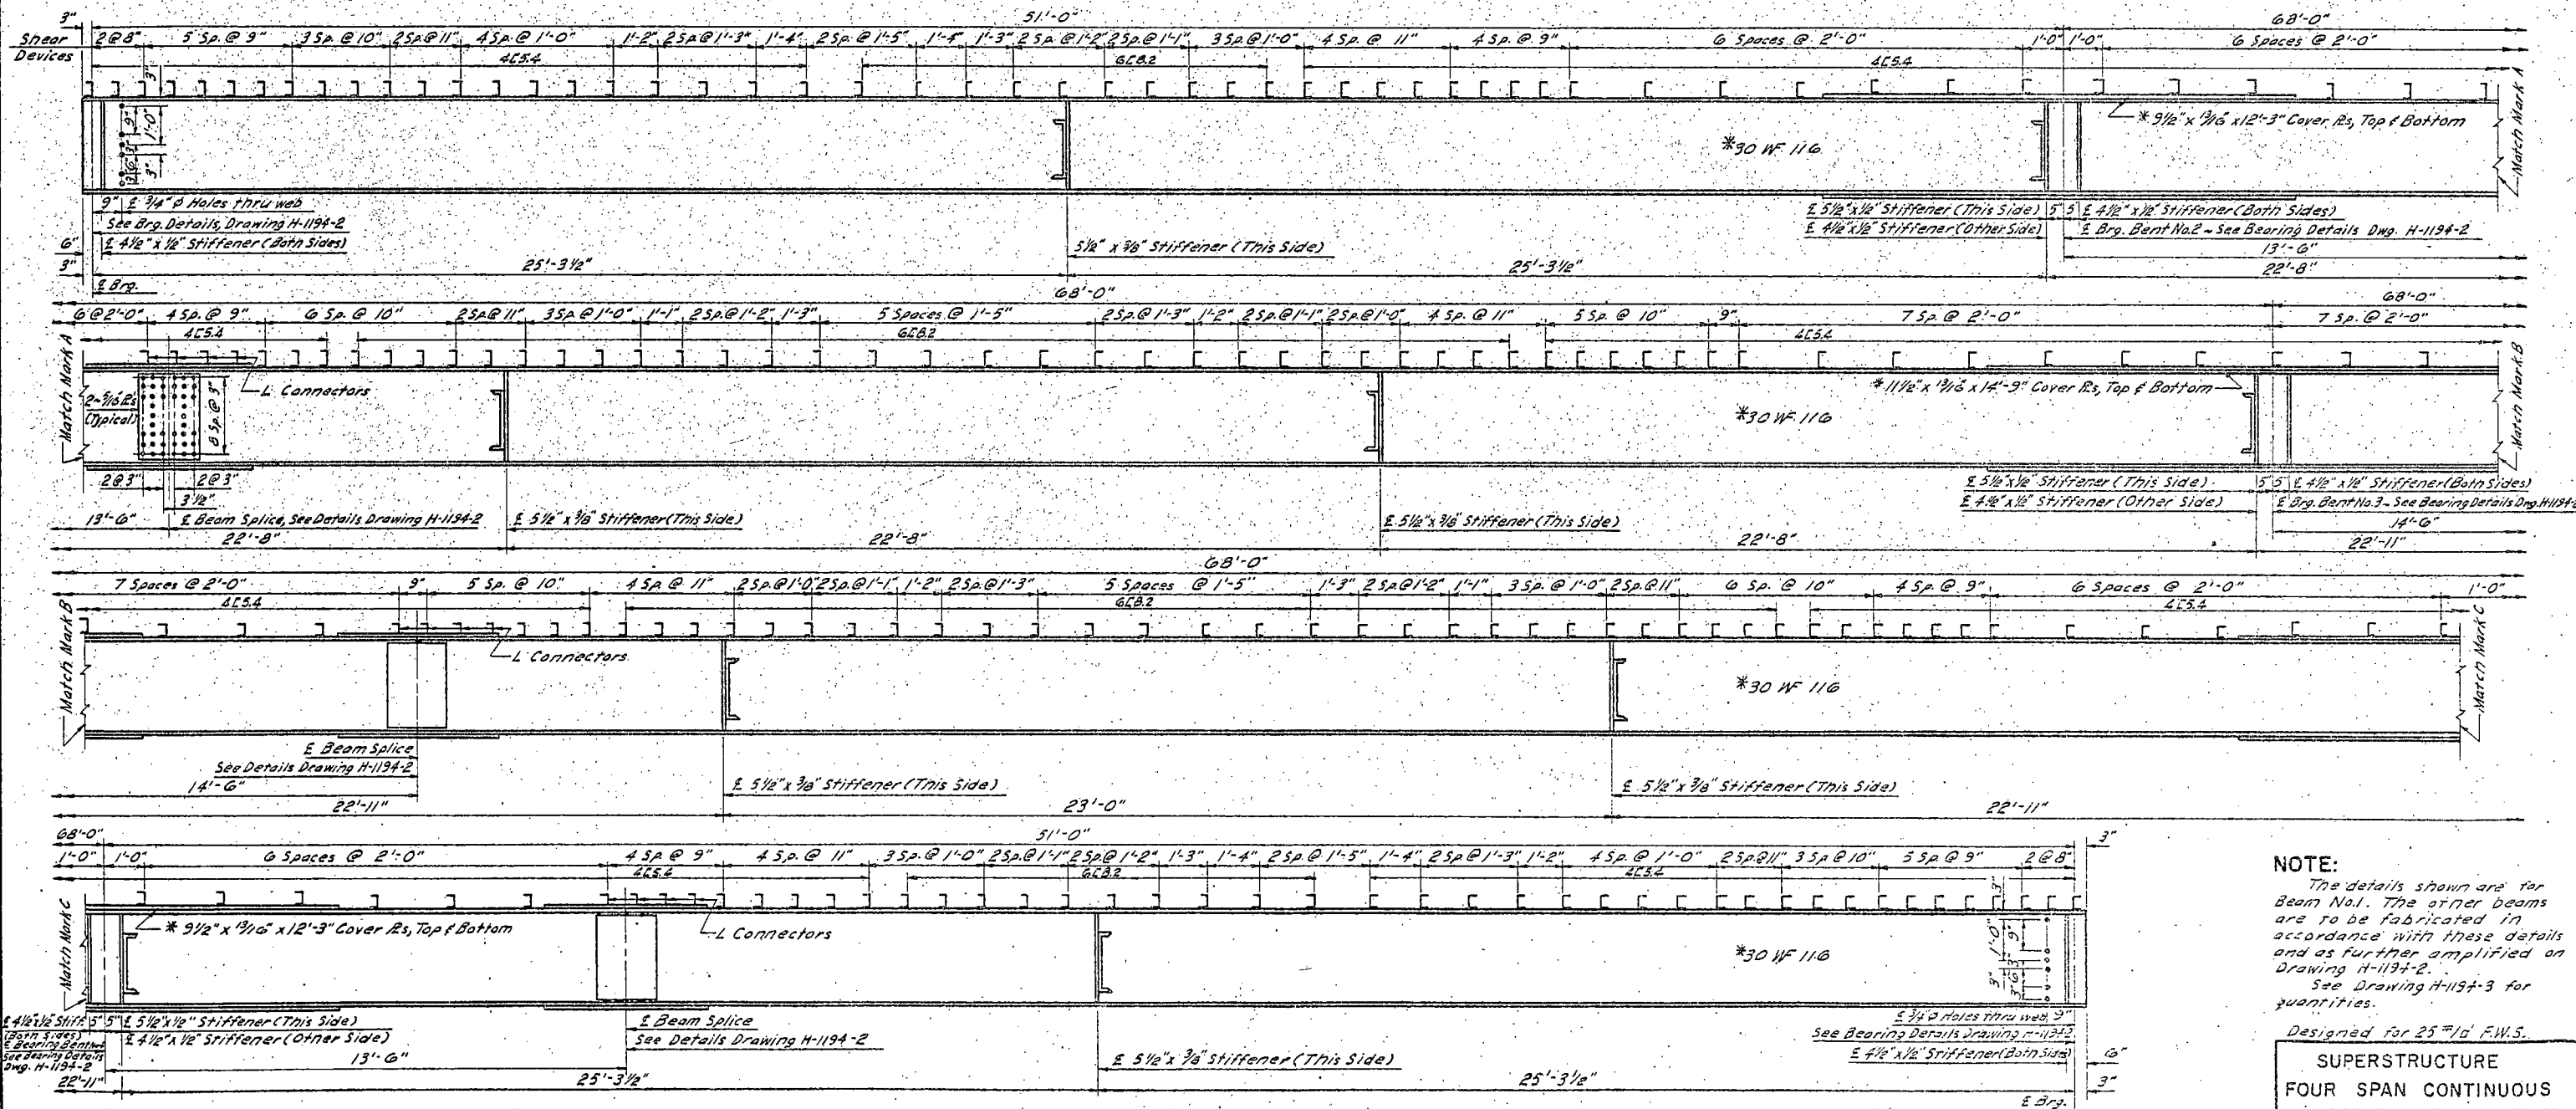 3" 51'-0" 68'-0"
Shear Devices
2@8" 5 Sp. @ 9" 3 Sp. @ 10" 2 Sp. @ 11" 4 Sp. @ 1'-0" 1'-2" 2 Sp. @ 1'-3" 1'-4" 2 Sp. @ 1'-5" 1'-4" 1'-3" 2 Sp. @ 1'-2" 2 Sp. @ 1'-1" 3 Sp. @ 1'-0" 4 Sp. @ 11" 4 Sp. @ 9" 6 Spaces @ 2'-0" 1'-0" 1'-0" 6 Spaces @ 2'-0"
4[5.4 6[8.2 4[5.4
3"
9" 1'-0" 3" 6" 3" 3"
*30 WF 116
* 9 1/2" x 13/16" x 12'-3" Cover PLs, Top & Bottom
Match Mark A
9" ℄ 3/4" φ Holes thru web
See Brg. Details, Drawing H-1194-2
℄ 4 1/2" x 1/2" Stiffener (Both Sides)
6"
3"
5 1/2" x 3/8" Stiffener (This Side)
℄ 5 1/2" x 1/2" Stiffener (This Side) 5" 5" ℄ 4 1/2" x 1/2" Stiffener (Both Sides)
℄ 4 1/2" x 1/2" Stiffener (Other Side) ℄ Brg. Bent No. 2 ~ See Bearing Details Dwg. H-1194-2
13'-6"
25'-3 1/2" 25'-3 1/2" 22'-8"
℄ Brg.
68'-0" 68'-0"
6@2'-0" 4 Sp. @ 9" 6 Sp. @ 10" 2 Sp. @ 11" 3 Sp. @ 1'-0" 1'-1" 2 Sp. @ 1'-2" 1'-3" 5 Spaces @ 1'-5" 2 Sp. @ 1'-3" 1'-2" 2 Sp. @ 1'-1" 2 Sp. @ 1'-0" 4 Sp. @ 11" 5 Sp. @ 10" 9" 7 Sp. @ 2'-0" 7 Sp. @ 2'-0"
4[5.4 6[8.2 4[5.4
Match Mark A
L Connectors
2~5/16 PLs (Typical)
8 Sp. @ 3"
*30 WF 116
* 11 1/2" x 13/16" x 14'-9" Cover PLs, Top & Bottom
Match Mark B
2@3" 2@3"
3 1/2"
13'-6" ℄ Beam Splice, See Details Drawing H-1194-2
℄ 5 1/2" x 3/8" Stiffener (This Side)
℄ 5 1/2" x 3/8" Stiffener (This Side)
℄ 5 1/2" x 1/2" Stiffener (This Side) 5" 5" ℄ 4 1/2" x 1/2" Stiffener (Both Sides)
℄ 4 1/2" x 1/2" Stiffener (Other Side) ℄ Brg. Bent No. 3 ~ See Bearing Details Dwg. H-1194-2
14'-6"
22'-8" 22'-8" 22'-8" 22'-11"
68'-0"
7 Spaces @ 2'-0" 9" 5 Sp. @ 10" 4 Sp. @ 11" 2 Sp. @ 1'-0" 2 Sp. @ 1'-1" 1'-2" 2 Sp. @ 1'-3" 5 Spaces @ 1'-5" 1'-3" 2 Sp. @ 1'-2" 1'-1" 3 Sp. @ 1'-0" 2 Sp. @ 11" 6 Sp. @ 10" 4 Sp. @ 9" 6 Spaces @ 2'-0" 1'-0"
4[5.4 6[8.2 4[5.4
Match Mark B
L Connectors
*30 WF 116
Match Mark C
℄ Beam Splice
See Details Drawing H-1194-2
14'-6"
℄ 5 1/2" x 3/8" Stiffener (This Side)
℄ 5 1/2" x 3/8" Stiffener (This Side)
22'-11" 23'-0" 22'-11"
68'-0" 51'-0" 3"
1'-0" 1'-0" 6 Spaces @ 2'-0" 4 Sp. @ 9" 4 Sp. @ 11" 3 Sp. @ 1'-0" 2 Sp. @ 1'-1" 2 Sp. @ 1'-2" 1'-3" 1'-4" 2 Sp. @ 1'-5" 1'-4" 2 Sp. @ 1'-3" 1'-2" 4 Sp. @ 1'-0" 2 Sp. @ 11" 3 Sp. @ 10" 5 Sp. @ 9" 2@8"
4[5.4 6[8.2 4[5.4
3"
Match Mark C
* 9 1/2" x 13/16" x 12'-3" Cover PLs, Top & Bottom
L Connectors
*30 WF 116
1'-0" 9" 3" 3" 6" 3"
℄ 4 1/2" x 1/2" Stiff. (Both Sides) 5" 5" ℄ 5 1/2" x 1/2" Stiffener (This Side)
℄ 4 1/2" x 1/2" Stiffener (Other Side)
℄ Bearing Bent
See Bearing Details Dwg. H-1194-2
13'-6"
℄ Beam Splice
See Details Drawing H-1194-2
℄ 5 1/2" x 3/8" Stiffener (This Side)
℄ 3/4" φ Holes thru web, 9"
See Bearing Details Drawing H-1194-2
℄ 4 1/2" x 1/2" Stiffener (Both Sides)
6"
22'-11" 25'-3 1/2" 25'-3 1/2" 3"
℄ Brg.
NOTE:
The details shown are for
Beam No. 1. The other beams
are to be fabricated in
accordance with these details
and as further amplified on
Drawing H-1194-2.
See Drawing H-1194-3 for
quantities.
Designed for 25 #/□' F.W.S.
SUPERSTRUCTURE
FOUR SPAN CONTINUOUS